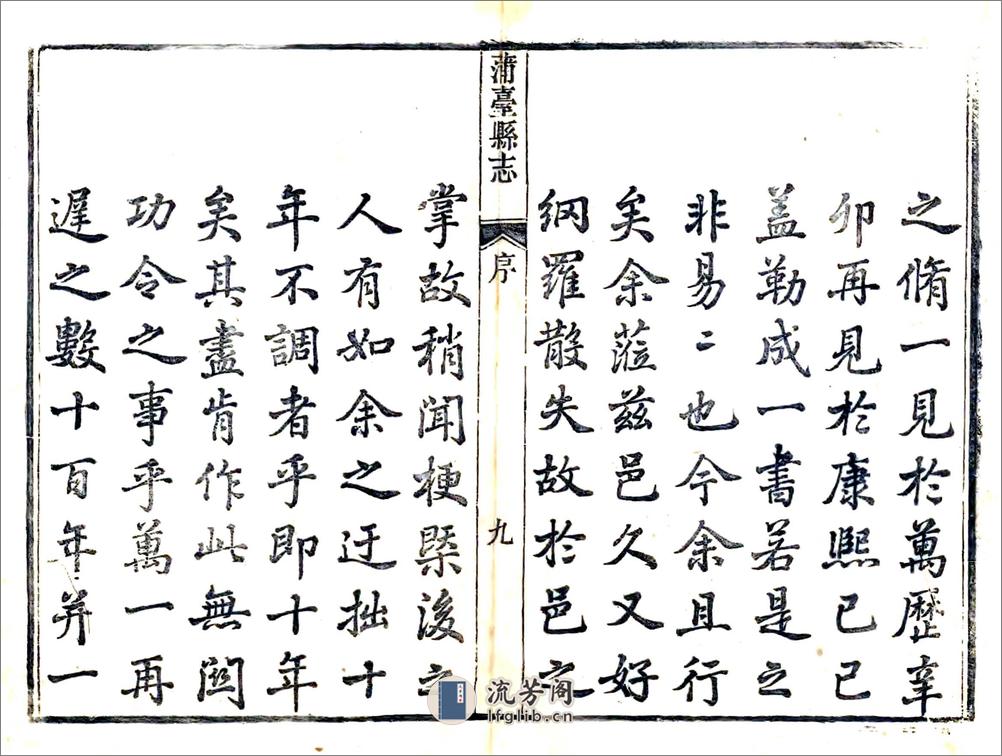 之脩一見於萬歷辛
卯再見於康熙已已
盖勒成一書若是之
非易〻也今余且行
矣余蒞兹邑久又好
網羅散失故於邑之
蒲臺縣志
序
九
掌故稍聞梗槩後之
人有如余之迂拙十
年不調者乎即十年
矣其盡肯作此無關
功令之事乎萬一再
遲之數十百年并一
流芳阁
lfglib.cn